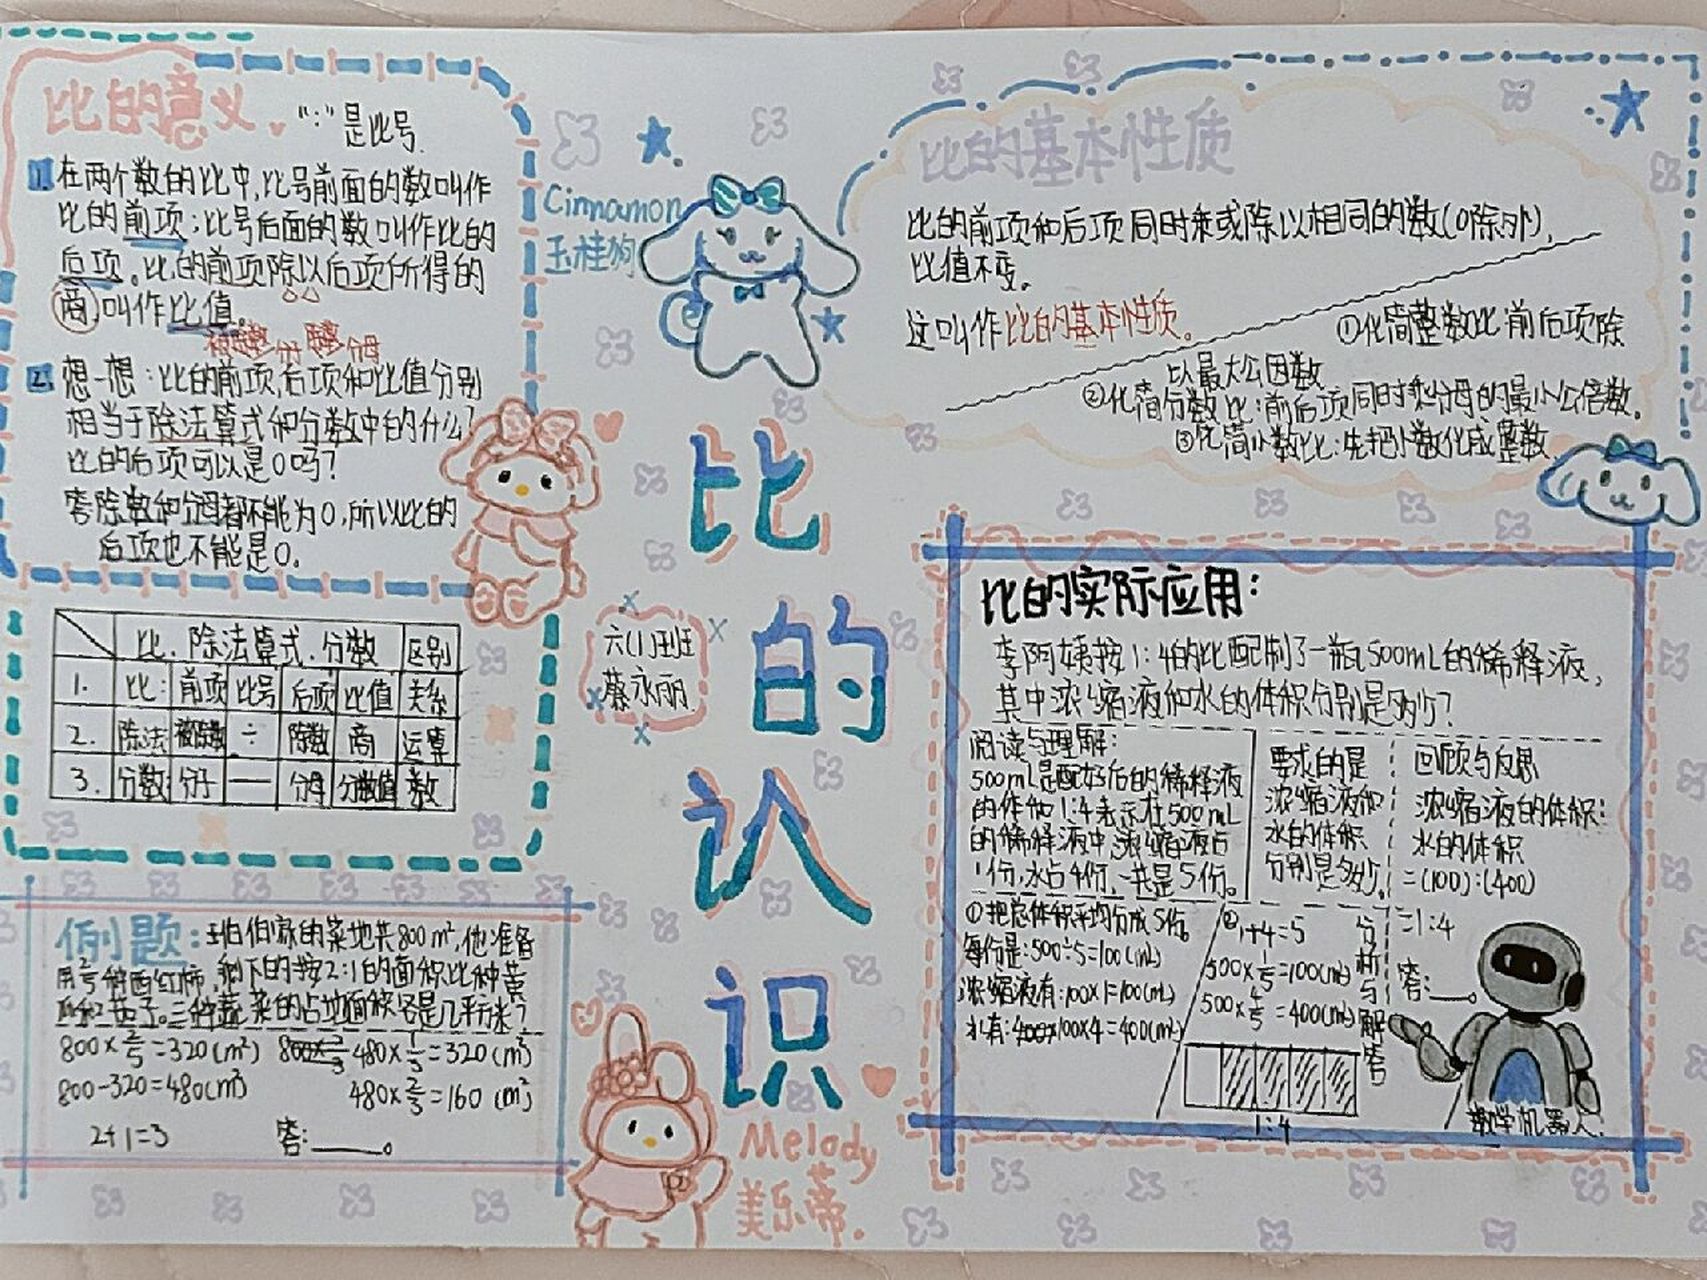 比的意义
":"是比号.
1. 在两个数的比中,比号前面的数叫作
比的前项;比号后面的数叫作比的
后项。比的前项除以后项所得的
商,叫作比值。
2. 想一想:比的前项,后项和比值分别
相当于除法算式和分数中的什么?
比的后项可以是0吗?
答除数和分母都不能为0,所以比的
后项也不能是0。
比、除法算式、分数 区别
1. 比: 前项 比号 后项 比值 关系
2. 除法 被除数 ÷ 除数 商 运算
3. 分数 分子 — 分母 分数值 数
例题:
伯伯家的菜地共800m²,他准备
种西红柿,剩下的按2:1的面积比种黄
瓜和茄子。三种蔬菜的占地面积各是几平方米?
800×2/5=320(m²) 480×1/3=320(m²)
800-320=480(m²) 480×2/3=160(m²)
2+1=3 答:____。
Cinnamon
玉桂狗
比的认识
六(1)班
蔡永丽
Melody
美乐蒂.
比的基本性质
比的前项和后项同时乘或除以相同的数(0除外),
比值不变。
这叫作比的基本性质。
①化简整数比:前后项除
以最大公因数
②化简分数比:前后项同时乘分母的最小公倍数。
③化简小数比:先把小数化成整数
比的实际应用:
李阿姨按1:4的比配制了一瓶500mL的稀释液,
其中浓缩液和水的体积分别是多少?
阅读与理解:
500mL是配好后的稀释液
的体积1:4表示在500mL
的稀释液中浓缩液占
1份,水占4份,一共是5份。
要求的是
浓缩液和
水的体积
分别是多少。
回顾与反思
浓缩液的体积:
水的体积
=(100):(400)
=1:4
答:___。
①把总体积平均分成5份。
每份是:500÷5=100(mL)
浓缩液有:100×1=100(mL)
水有:100×4=400(mL)
② 1+4=5
500×1/5=100(mL)
500×4/5=400(mL)
分析与解答
1:4
数学机器人.